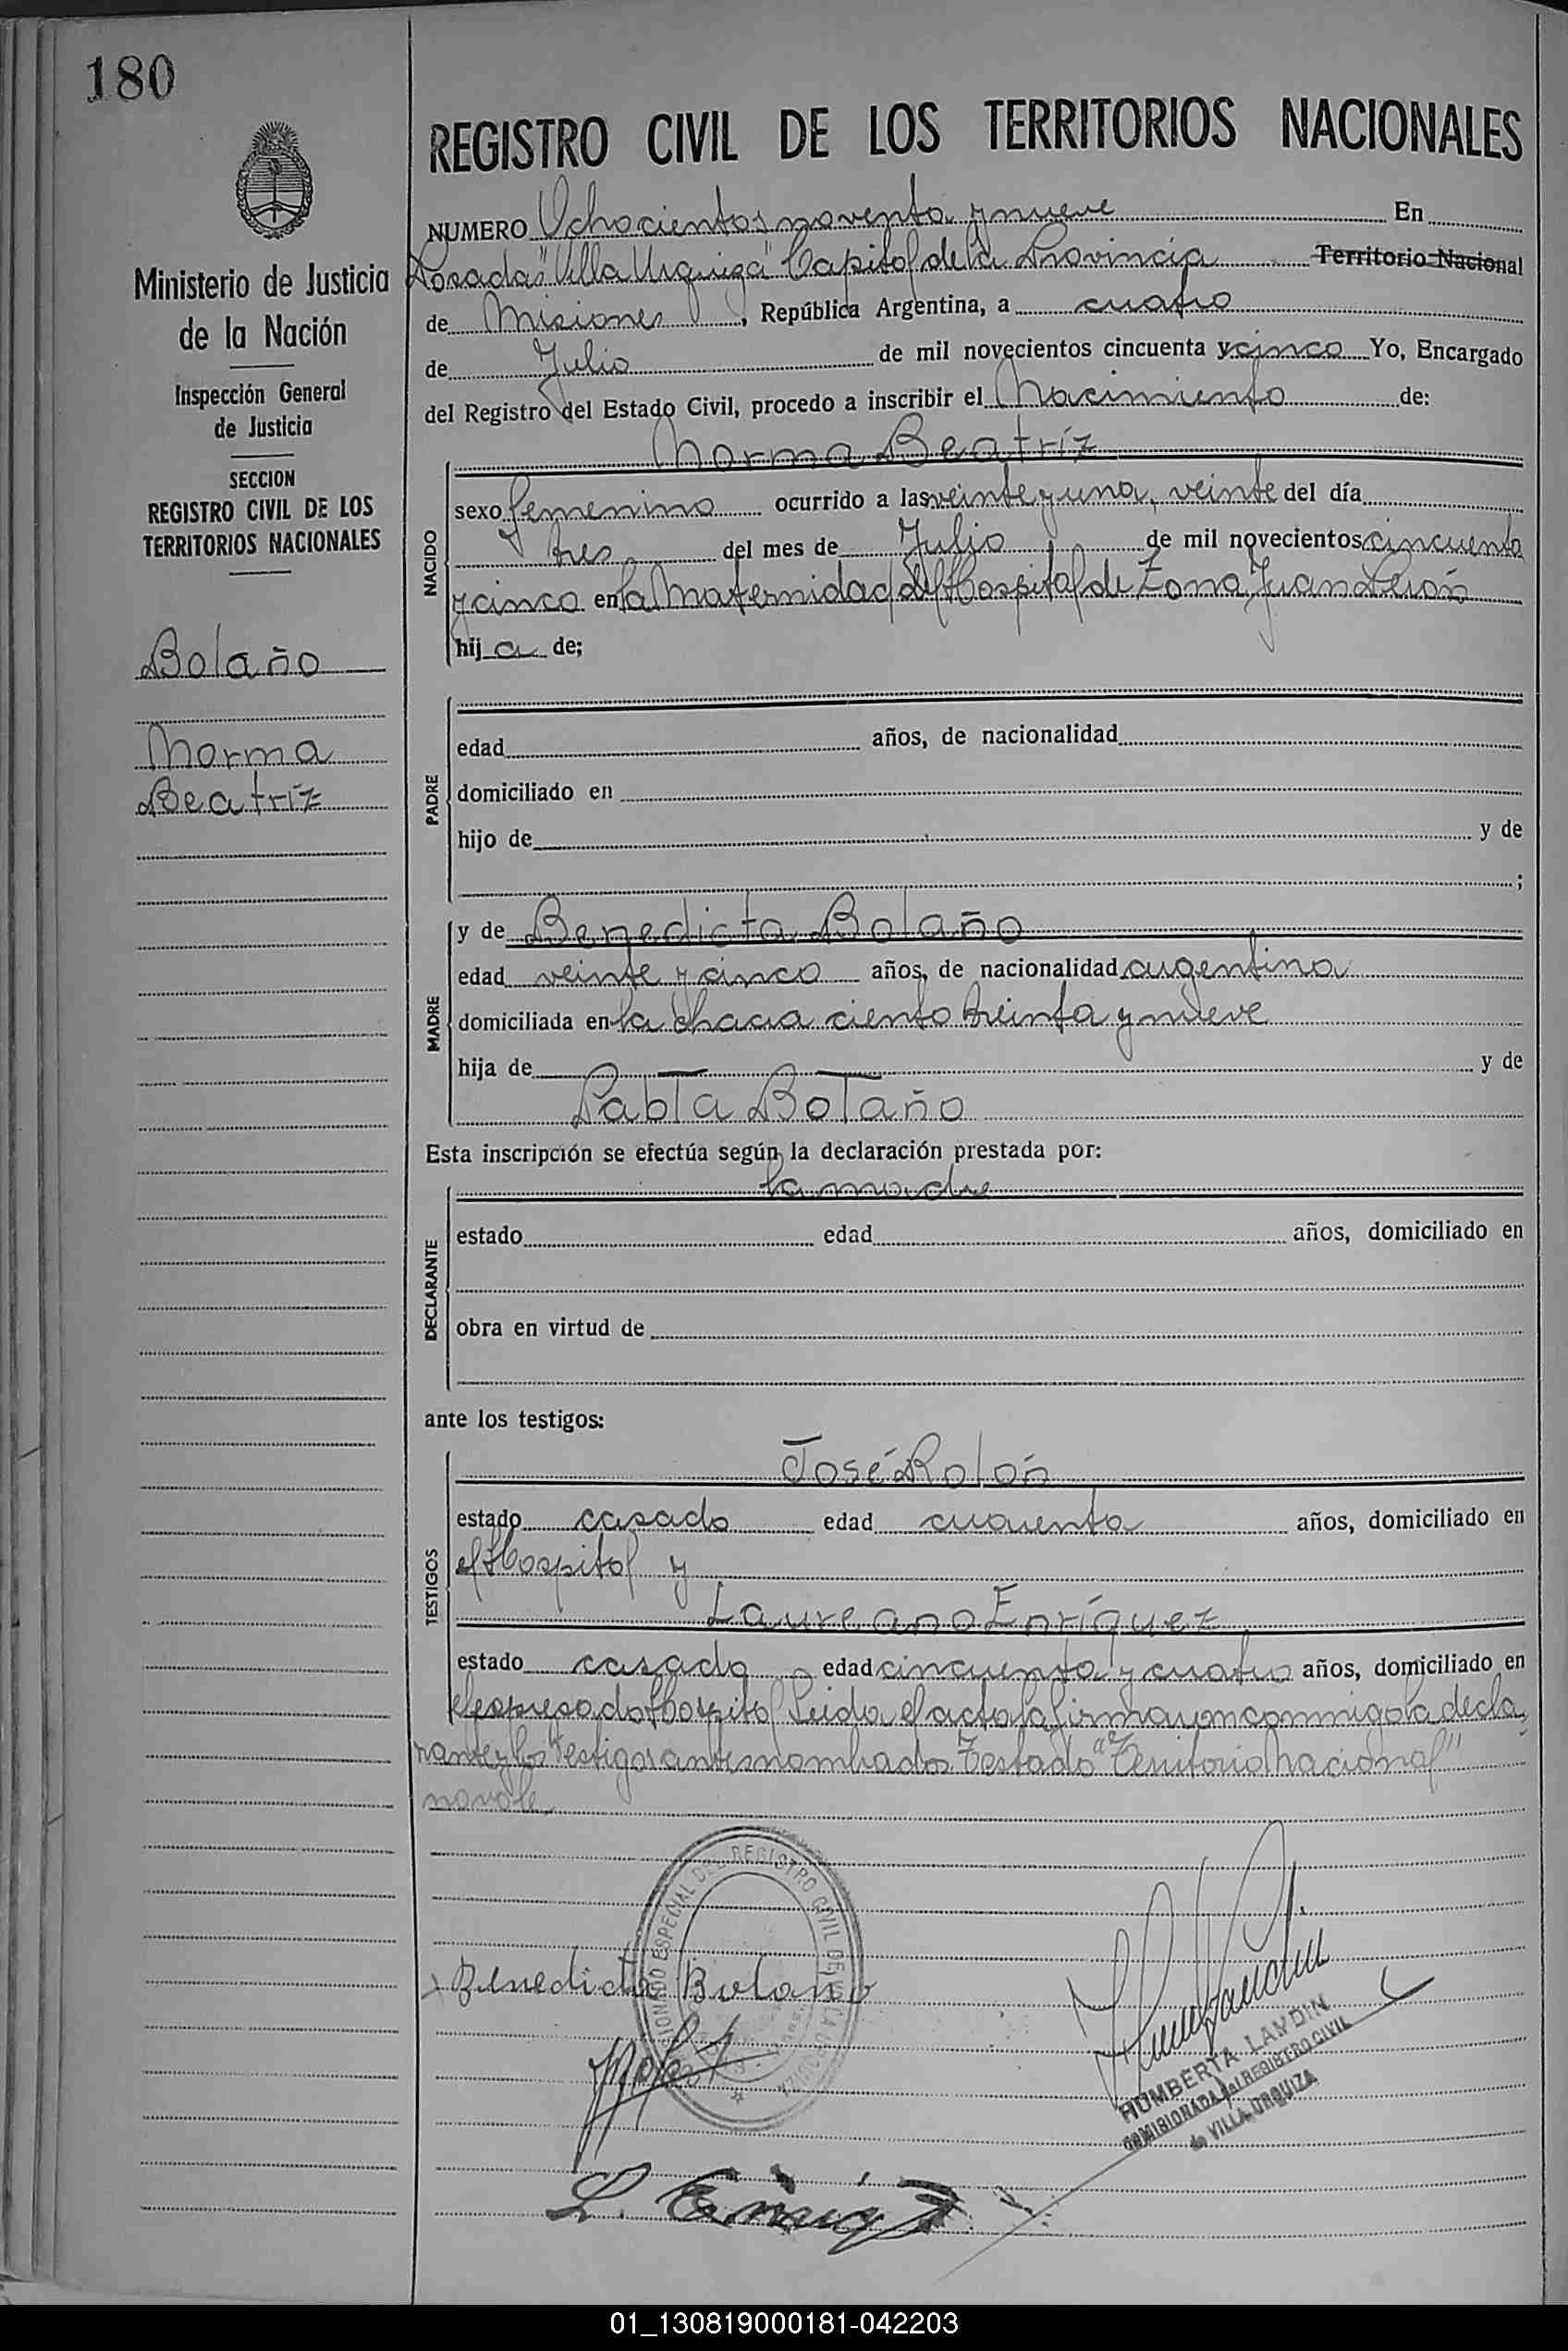 180
REGISTRO CIVIL DE LOS TERRITORIOS NACIONALES
Ministerio de Justicia
de la Nación
Inspección General
de Justicia
SECCION
REGISTRO CIVIL DE LOS
TERRITORIOS NACIONALES
Bolaño
Norma
Beatríz
NUMERO Ochocientos noventa y nueve En
Posadas "Villa Urquiza" Capital de la Provincia Territorio Nacional
de Misiones, República Argentina, a cuatro
de Julio de mil novecientos cincuenta y cinco Yo, Encargado
del Registro del Estado Civil, procedo a inscribir el Nacimiento de:
Norma Beatríz
NACIDO
sexo femenino ocurrido a las veinte y una, veinte del día
tres del mes de Julio de mil novecientos cincuenta
y cinco en la Maternidad del Hospital de Zona Juan Perón
hija de;
PADRE
edad años, de nacionalidad
domiciliado en
hijo de y de
;
MADRE
y de Benedicta Bolaño
edad veinte y cinco años, de nacionalidad argentina
domiciliada en la chacra ciento treinta y nueve
hija de y de
Pabla Bolaño
Esta inscripción se efectúa según la declaración prestada por:
DECLARANTE
la madre
estado edad años, domiciliado en
obra en virtud de
ante los testigos:
TESTIGOS
José Rolón
estado casado edad cuarenta años, domiciliado en
el Hospital y
Laureano Enríquez
estado casado edad cincuenta y cuatro años, domiciliado en
el expresado Hospital Leida el acta la firmaron conmigo la decla
rante y los testigos antes nombrados Testado "Territorio Nacional"
no vale
COMISIONADO ESPECIAL DEL REGISTRO CIVIL DE VILLA URQUIZA
Benedicta Bolano
HUMBERTA LANDIN
COMISIONADA del REGISTRO CIVIL
de VILLA URQUIZA
L. Enriquez
01_130819000181-042203